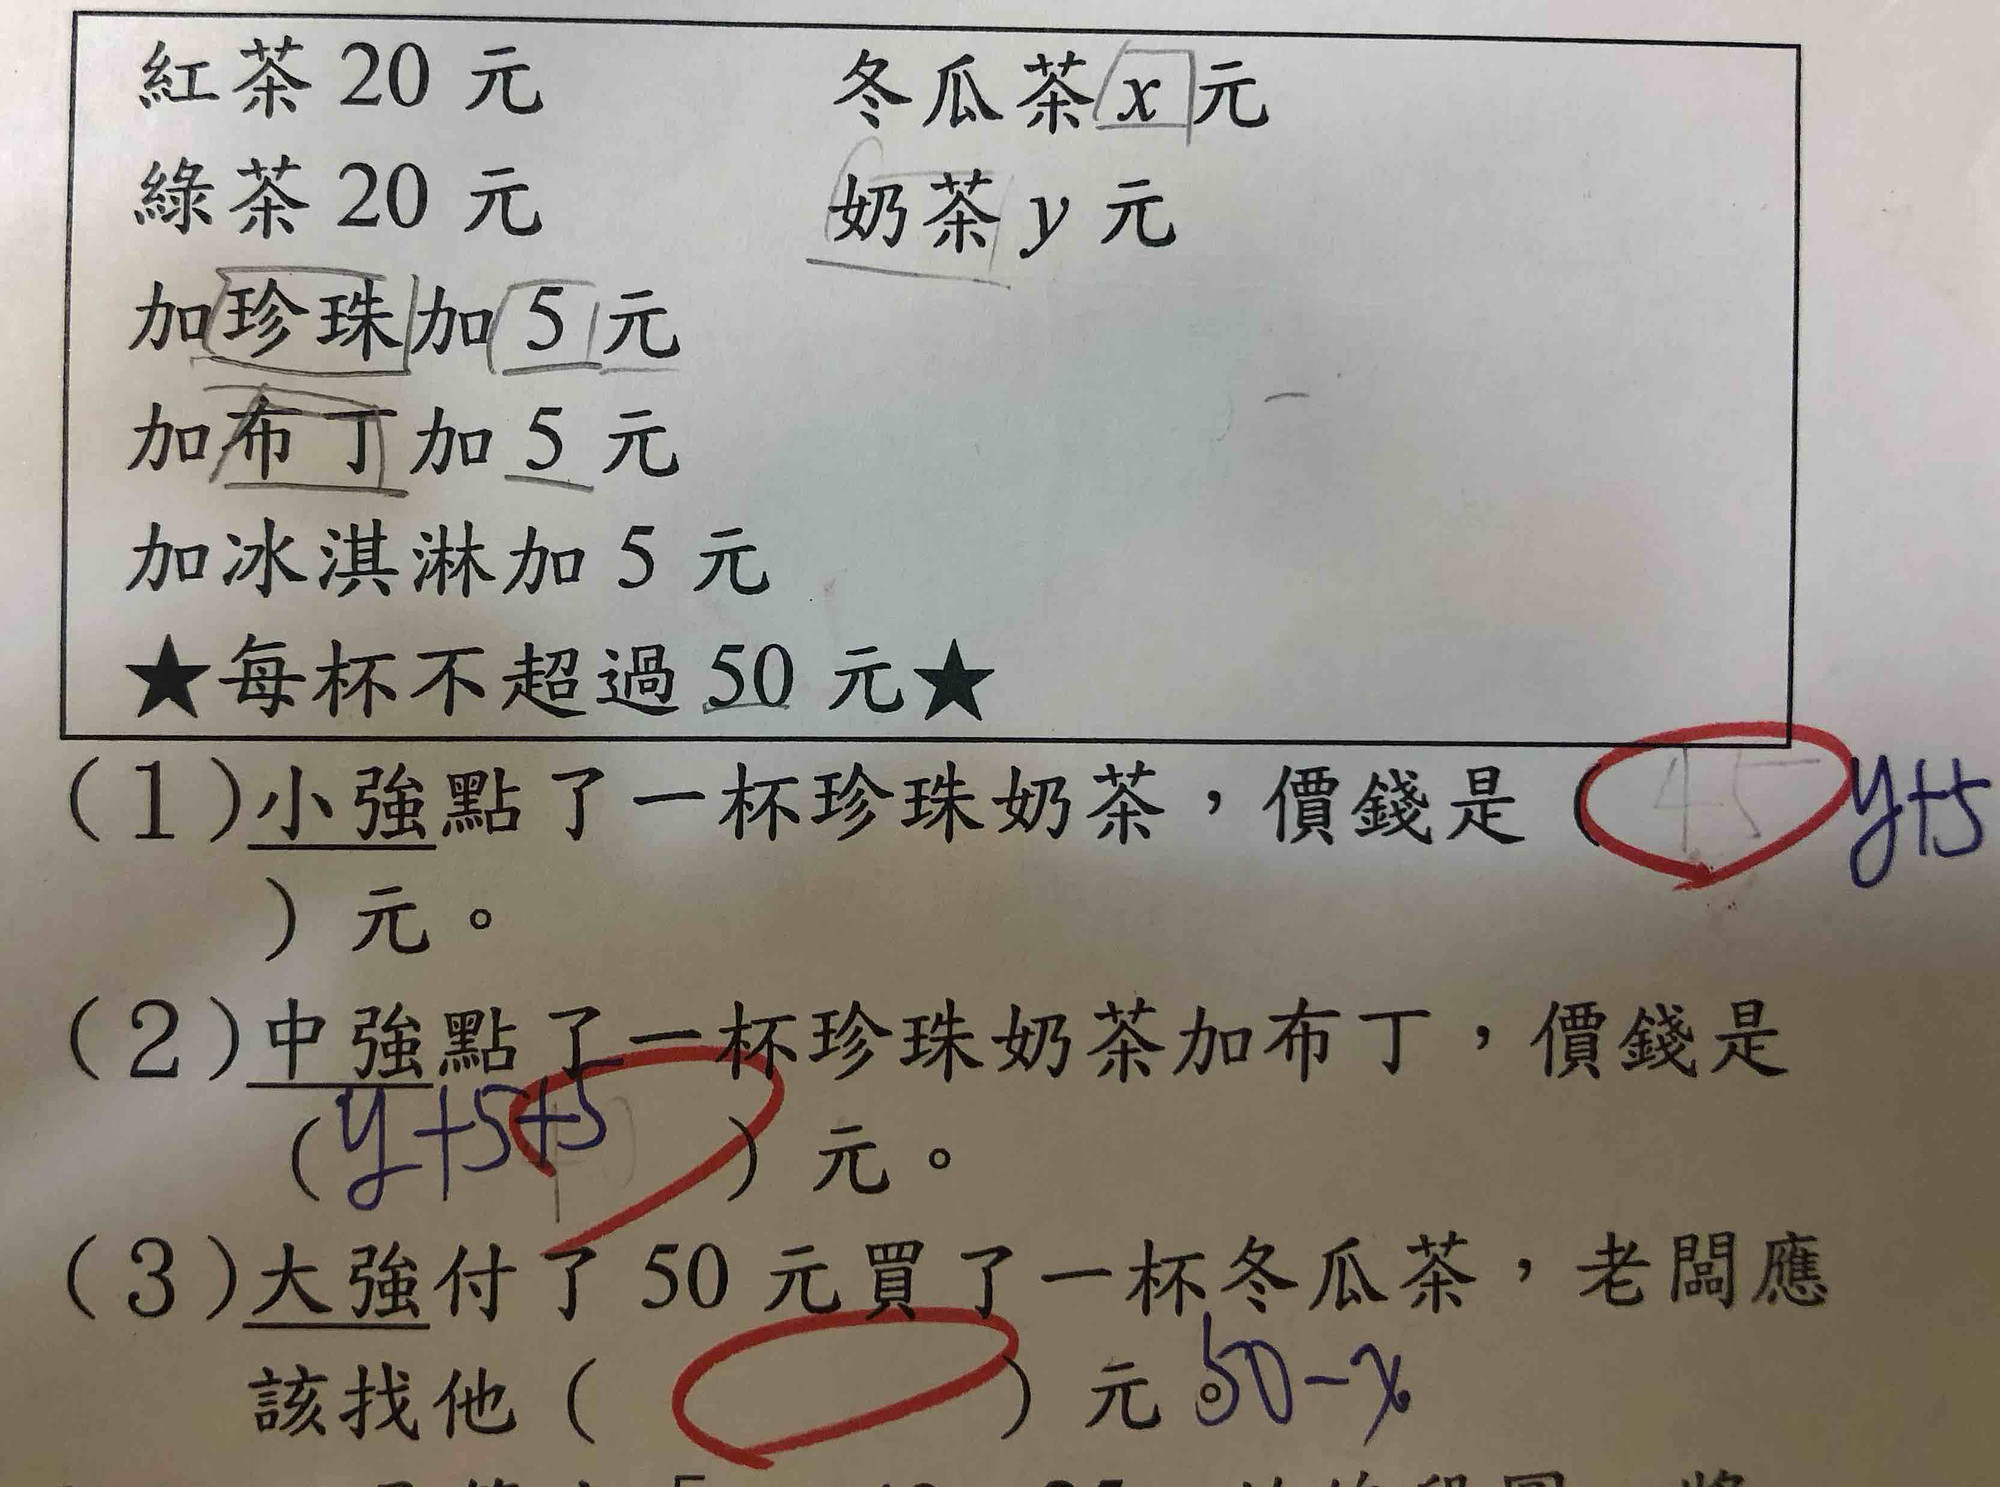 紅茶 20 元
冬瓜茶 x 元
綠茶 20 元
奶茶 y 元
加珍珠加 5 元
加布丁加 5 元
加冰淇淋加 5 元
★每杯不超過 50 元★
(1)小強點了一杯珍珠奶茶，價錢是( 45 y+5
)元。
(2)中強點了一杯珍珠奶茶加布丁，價錢是
( y+5+5 )元。
(3)大強付了 50 元買了一杯冬瓜茶，老闆應
該找他( )元。50-x